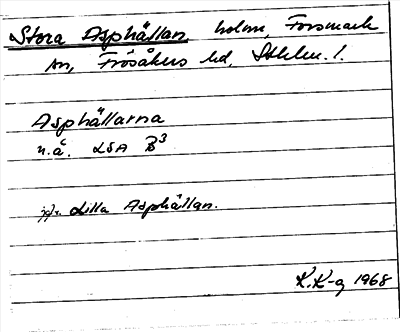 Stora Asphällan, holm, Forsmark
sn, Frösåkers hd, Sthlm. l.
Asphällarna
n.å. LSA B3
jfr. Lilla Asphällan.
K.K-g 1968